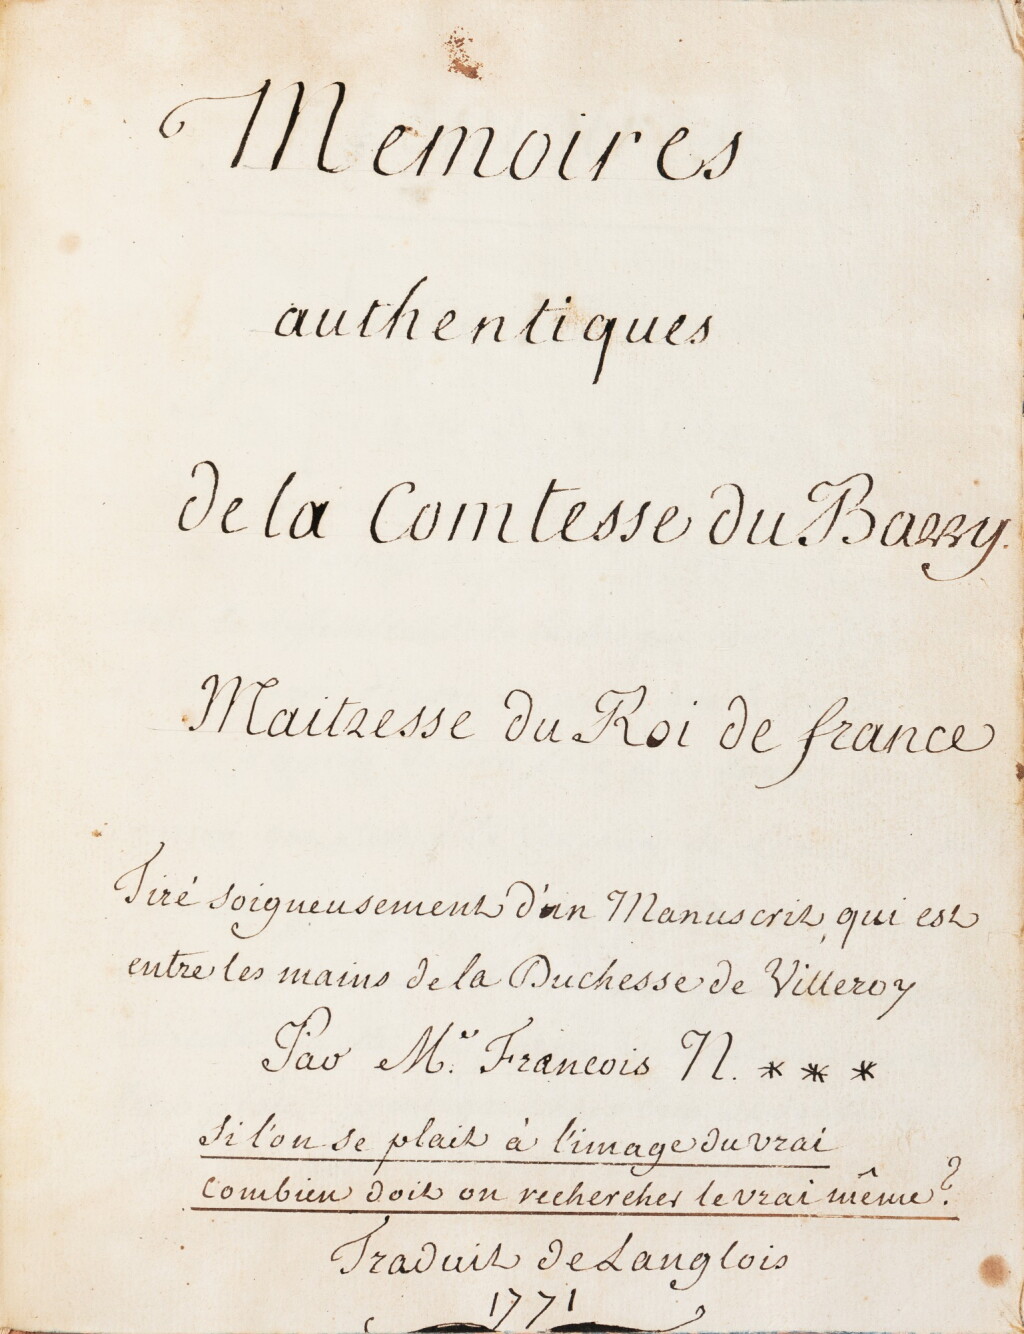 Memoires
authentiques
de la Comtesse du Barry.
Maitresse du Roi de france
Tiré soigneusement d'un Manuscrit, qui est
entre les mains de la Duchesse de Villeroy
Par Mr. Francois N. ***
Si l'on se plait à l'image du vrai
combien doit on rechercher le vrai même?
Traduit de Langlois
1771